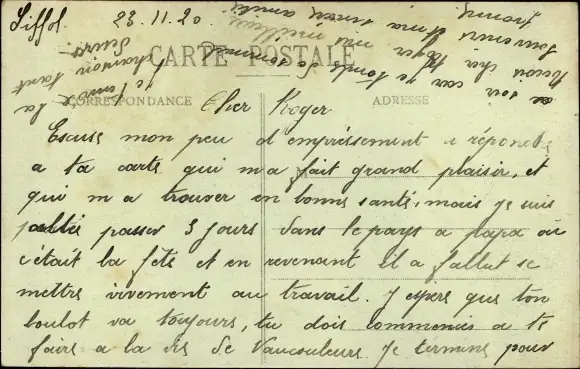 Liffol. 23.11.20
CARTE POSTALE
CORRESPONDANCE
ADRESSE
Cher Roger
Escuse mon peu d'empressement a répondre
a ta carte qui m'a fait grand plaisir, et
qui m'a trouver en bonne santé, mais je suis
passer 3 jours dans le pays a papa où
c'était la fête et en revenant il a fallut se
mettre vivement au travail. J'espère que ton
boulot va toujours, tu dois commencer a te
faire a la vie de Vaucouleurs. Je termine pour
ce soir car le temps
Reçoit cher Roger mes meilleurs
souvenirs et ma sincère amitié
Je t'envoie la
chanson tant